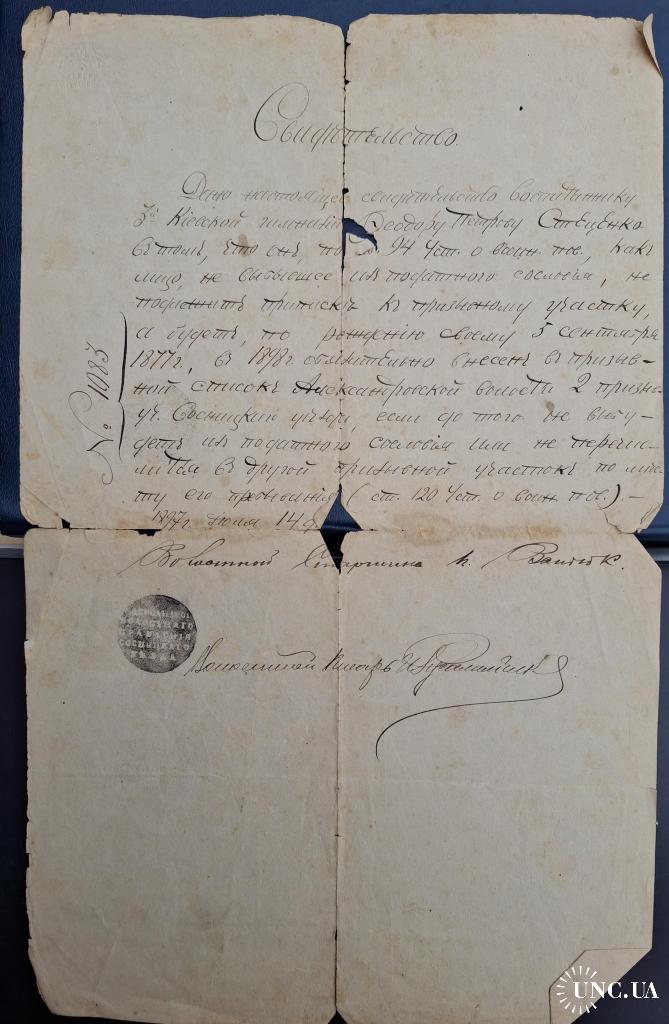 Свидѣтельство.
Дано настоящее свидѣтельство воспитаннику
3й Кіевской гимназіи Ѳеодору Петрову Стеценко
въ томъ, что онъ, по 94 Уст. о воин. пов., какъ
лицо, не выбывшее изъ податнаго сословія, не
подлежитъ припискѣ къ призывному участку,
а будетъ, по рожденію своему 5 сентября
1877г., въ 1898г. обязательно внесенъ въ призыв-
ной списокъ Александровской волости 2 призыв.
уч. Сосницкаго уѣзда, если до того не выбу-
детъ изъ податнаго сословія или не перечис-
лится въ другой призывной участокъ по мѣс-
ту его проживанія (ст. 120 Уст. о воин. пов.) –
1897г. Іюля 14 д.
№ 1083
Волостной Старшина
ВОЛОСТНАГО
ПРАВЛЕНІЯ
СОСНИЦКАГО
УѢЗДА
Волостной писарь
UNC.UA